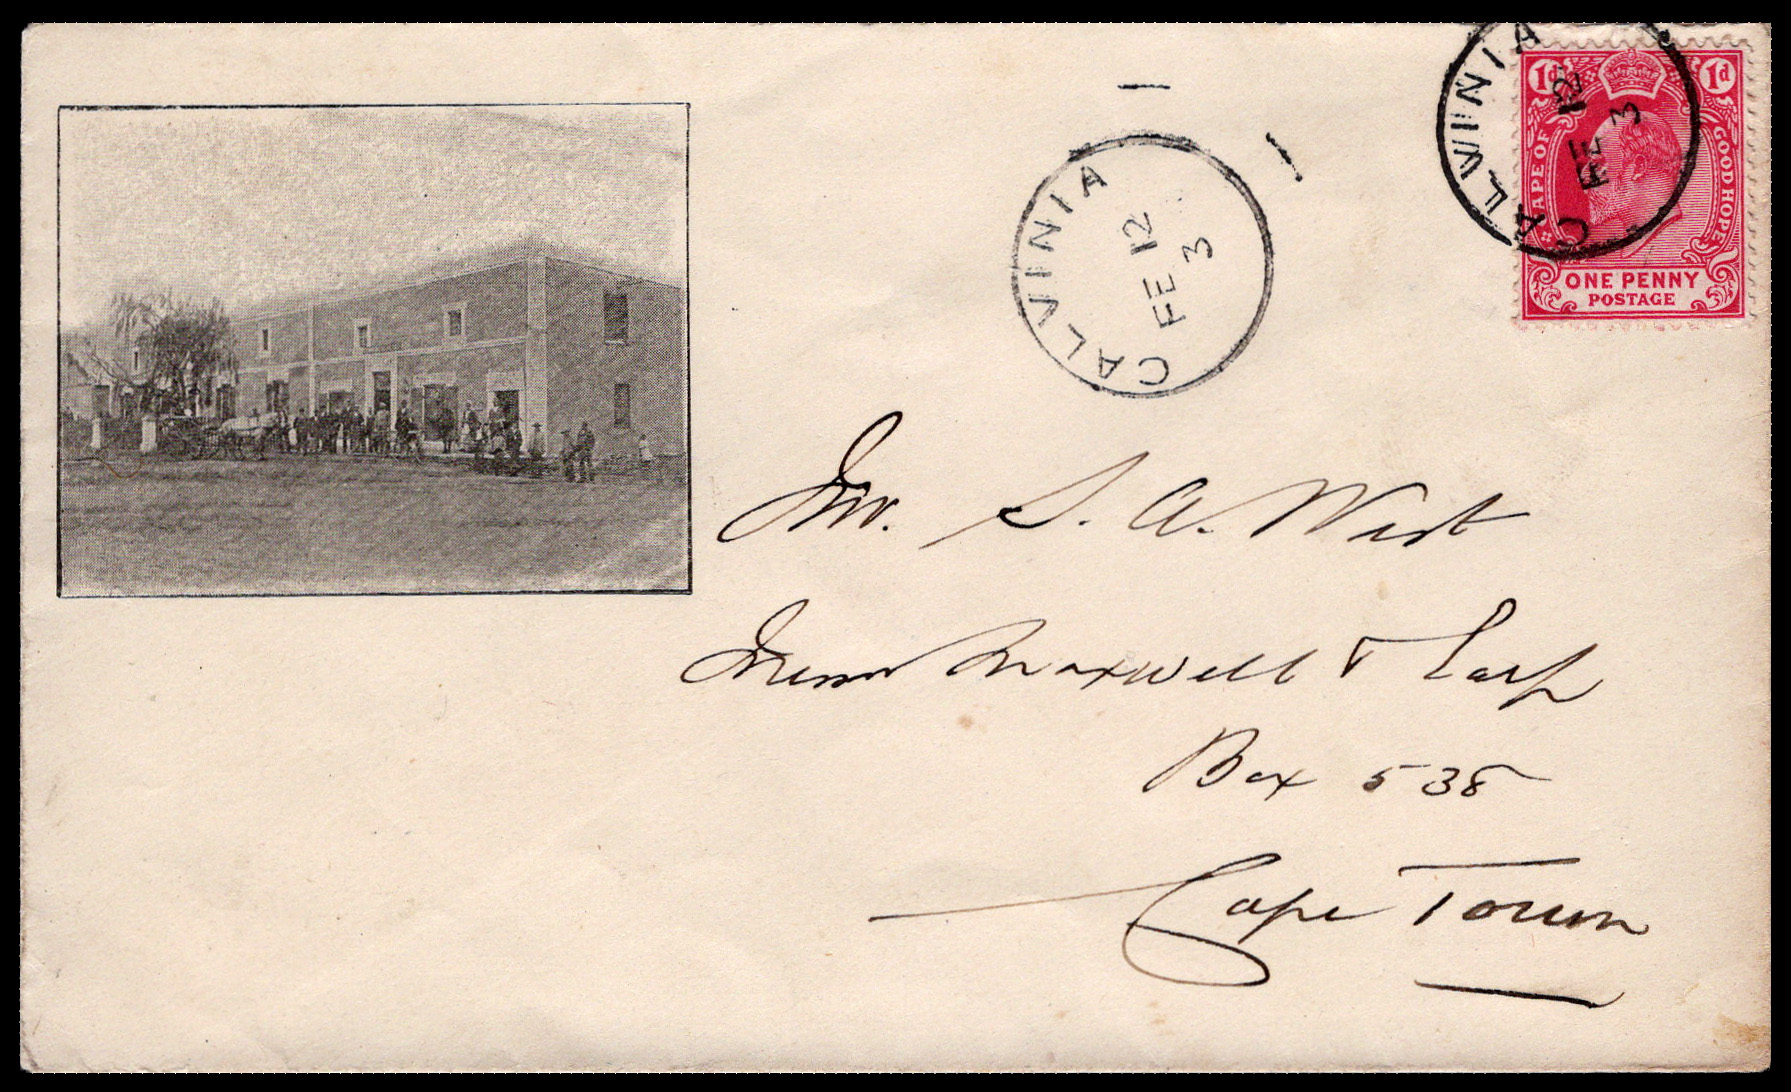 CALVINIA
FE 12
3
CALVINIA
FE 12
3
1d 1d
CAPE OF GOOD HOPE
ONE PENNY
POSTAGE
Mr. S. A. West
Messrs Maxwell & Earp
Box 538
Cape Town